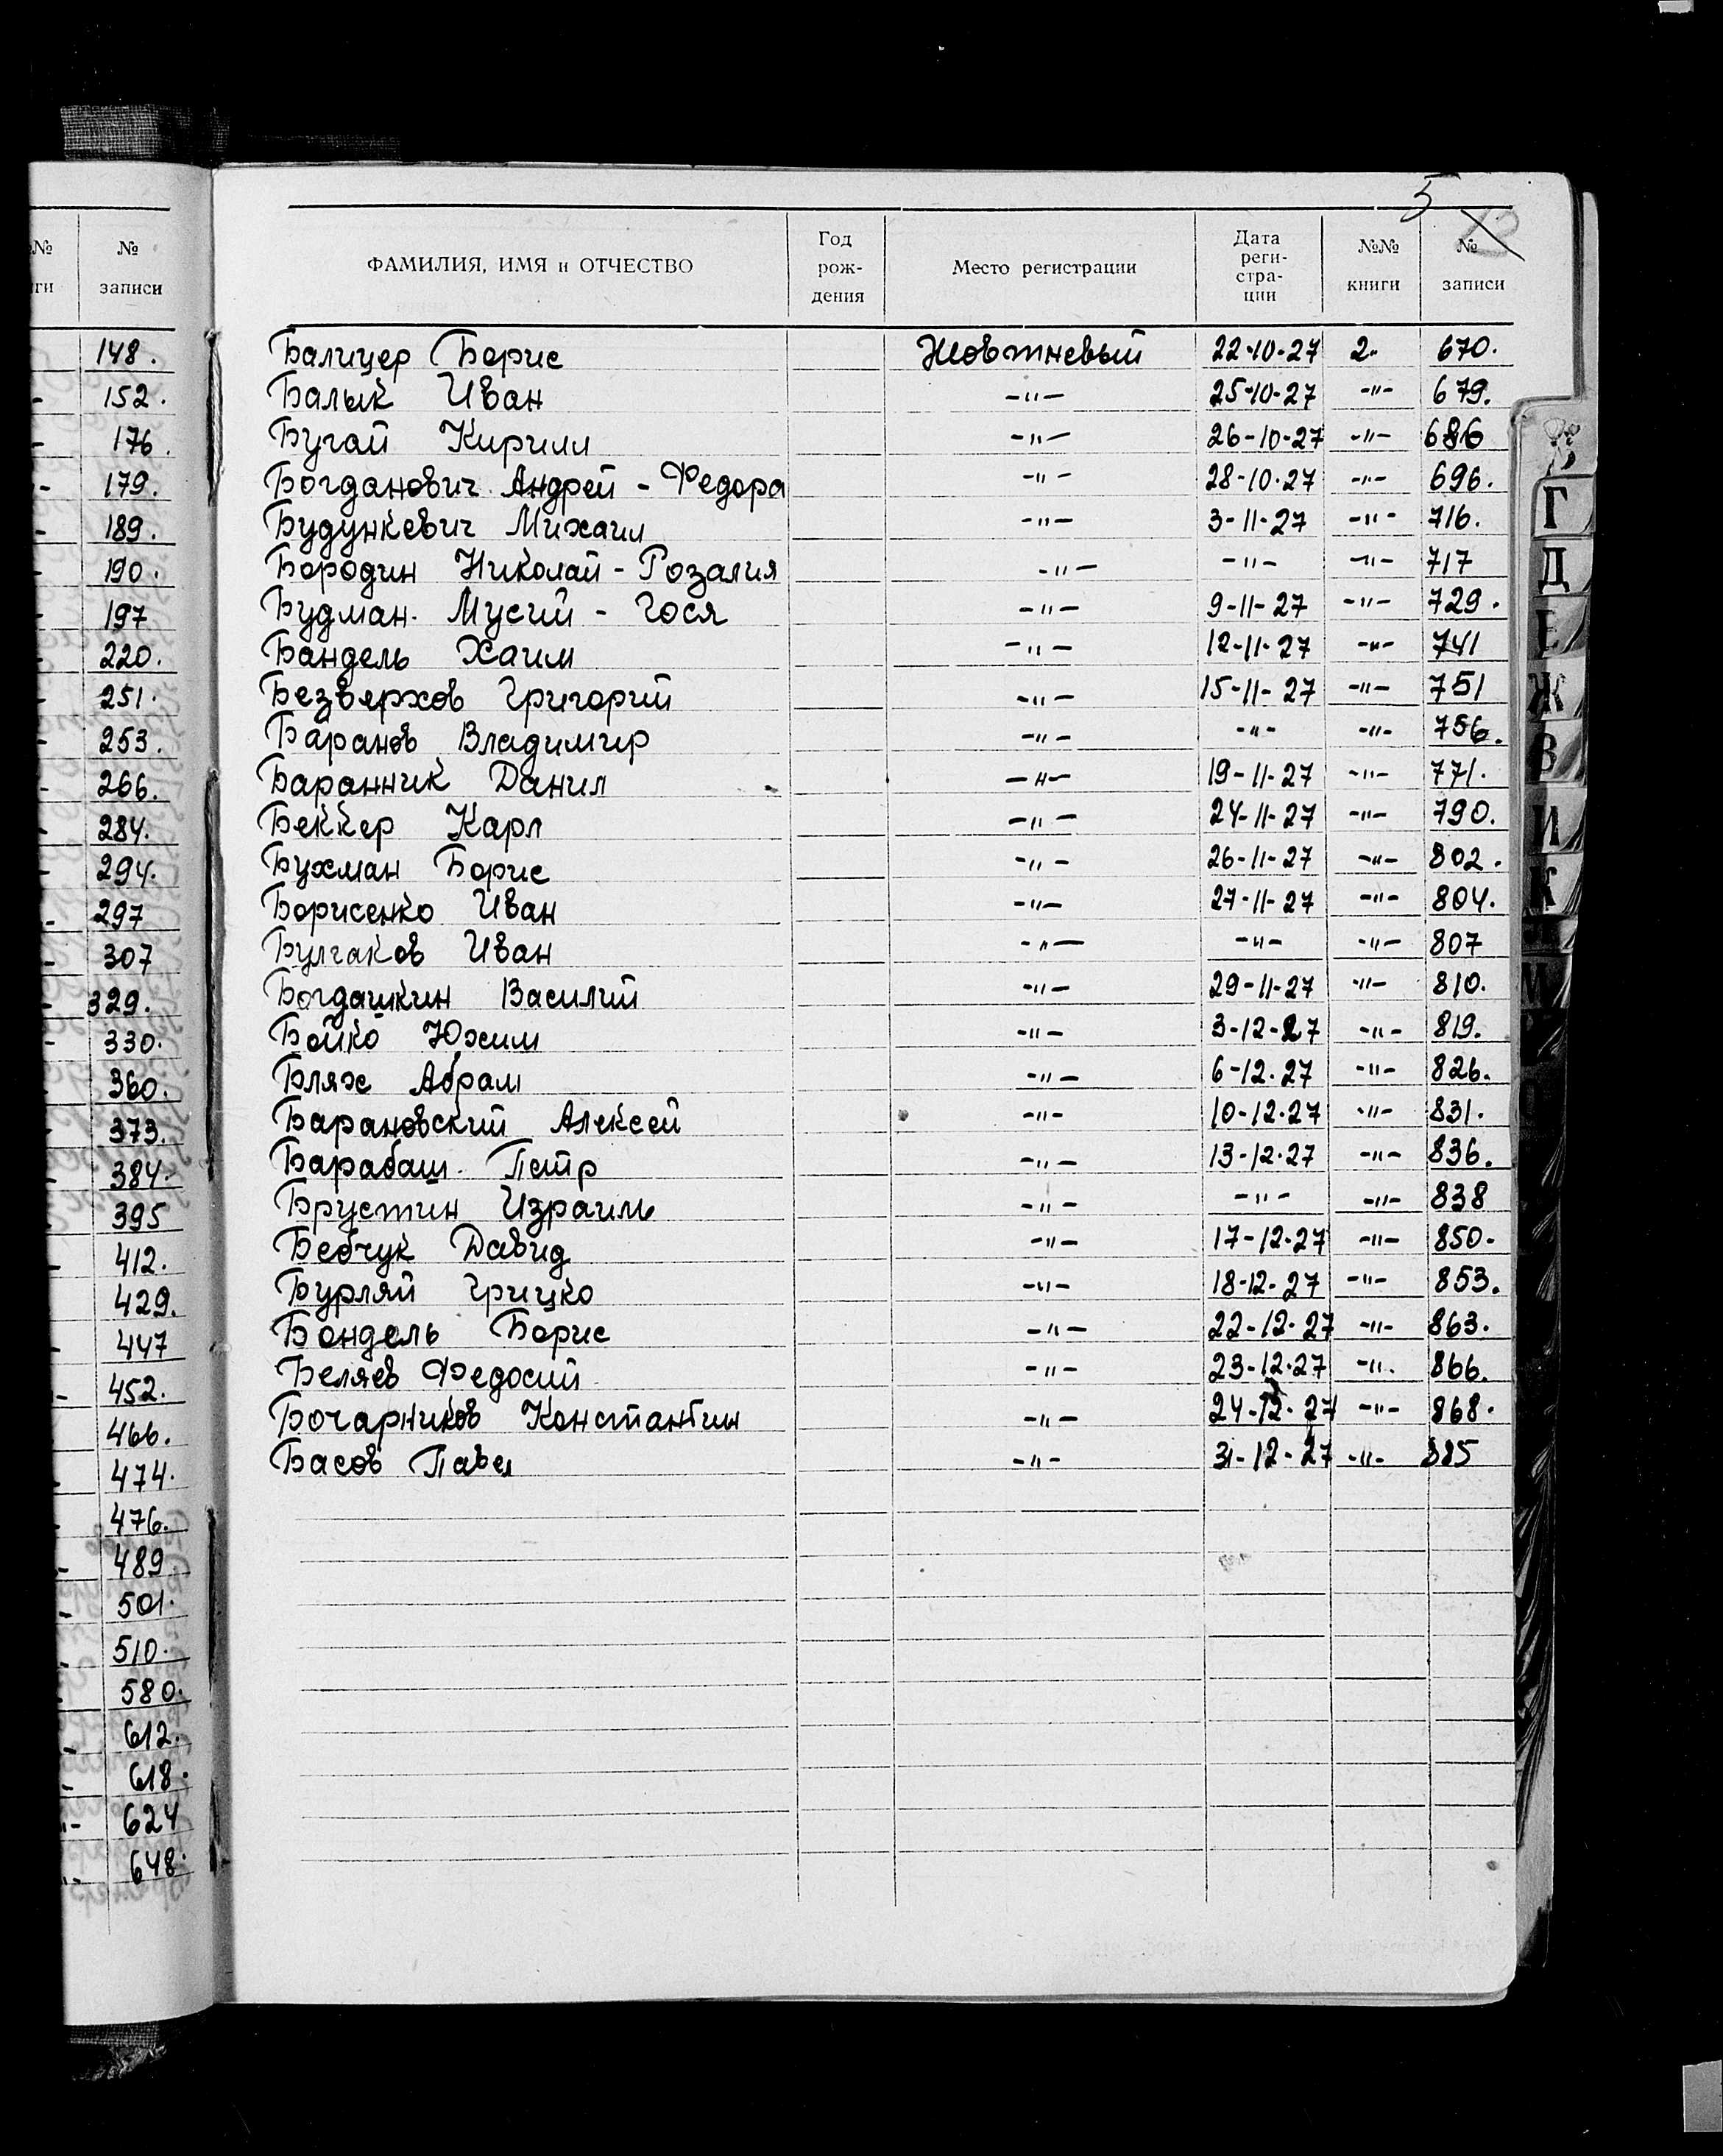 №№
№
ги
записи
148.
152.
176.
179.
189.
190.
197
220.
251.
253.
266.
284.
294.
297
307
329.
330.
360.
373.
384.
395
412.
429.
447
452.
466.
474.
476.
489
501.
510.
580.
612.
618.
624
648.
5
ФАМИЛИЯ, ИМЯ и ОТЧЕСТВО Год рож- дения Место регистрации Дата реги- стра- ции №№ книги № записи
Балицер Борис Жовтневый 22-10-27 2. 670.
Балык Иван -"- 25-10-27 -"- 679.
Бугай Кирилл -"- 26-10-27 -"- 686
Богданович Андрей - Федора -"- 28-10-27 -"- 696.
Будункевич Михаил -"- 3-11-27 -"- 716.
Бородин Николай - Розалия -"- -"- -"- 717
Будман. Мусий - Гося -"- 9-11-27 -"- 729.
Бандель Хаим -"- 12-11-27 -"- 741
Безверхов Григорий -"- 15-11-27 -"- 751
Баранов Владимир -"- -"- -"- 756.
Баранник Данил -"- 19-11-27 -"- 771.
Беккер Карл -"- 24-11-27 -"- 790.
Бухман Борис -"- 26-11-27 -"- 802.
Борисенко Иван -"- 27-11-27 -"- 804.
Булгаков Иван -"- -"- -"- 807
Богдашкин Василий -"- 29-11-27 -"- 810.
Бойко Юхим -"- 3-12-27 -"- 819.
Блях Абрам -"- 6-12-27 -"- 826.
Барановский Алексей -"- 10-12-27 -"- 831.
Барабаш. Петр -"- 13-12-27 -"- 836.
Брустин Израиль -"- -"- -"- 838
Бебчук Давид -"- 17-12-27 -"- 850-
Бурляй Грицко -"- 18-12-27 -"- 853.
Бондель Борис -"- 22-12-27 -"- 863.
Беляев Федосий -"- 23-12-27 -"- 866.
Бочарников Константин -"- 24-12-27 -"- 868.
Басов Павел -"- 31-12-27 -"- 885
Г
Д
Е
Ж
З
И
К
М